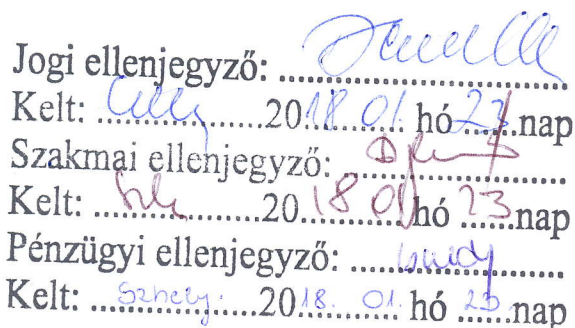 Jogi ellenjegyző: ..............
Kelt: ..............2018.01. hó 23.nap
Szakmai ellenjegyző: ..............
Kelt: ..............2018 01 hó 23.nap
Pénzügyi ellenjegyző: ..............
Kelt: Szhely. 2018. 01. hó 23.nap